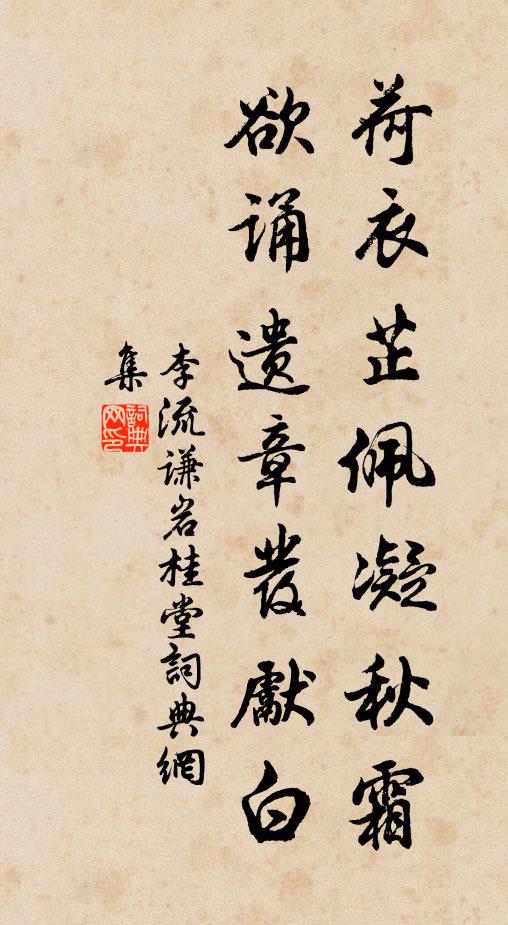 荷衣芷佩凝秋霜
欲诵遗章發獻白
李流谦岩桂堂詞典網
集
詞典
网印